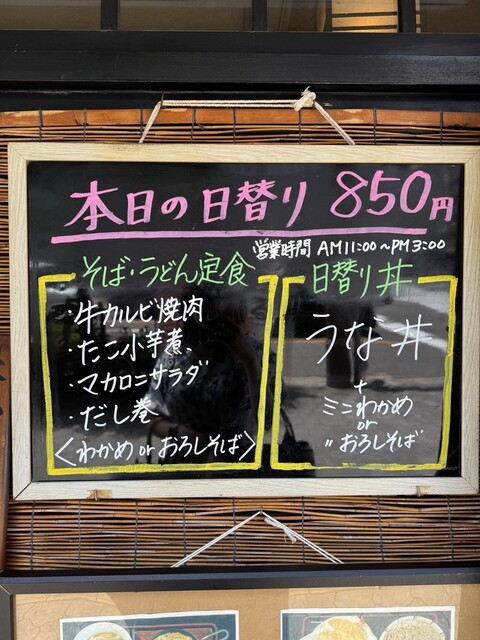 本日の日替り 850円
営業時間 AM11:00～PM3:00
そば・うどん定食
・牛カルビ焼肉
・たこ小芋煮、
・マカロニサラダ
・だし巻
〈わかめ or おろしそば〉
日替り丼
うな丼
+
ミニわかめ
or
〃おろしそば